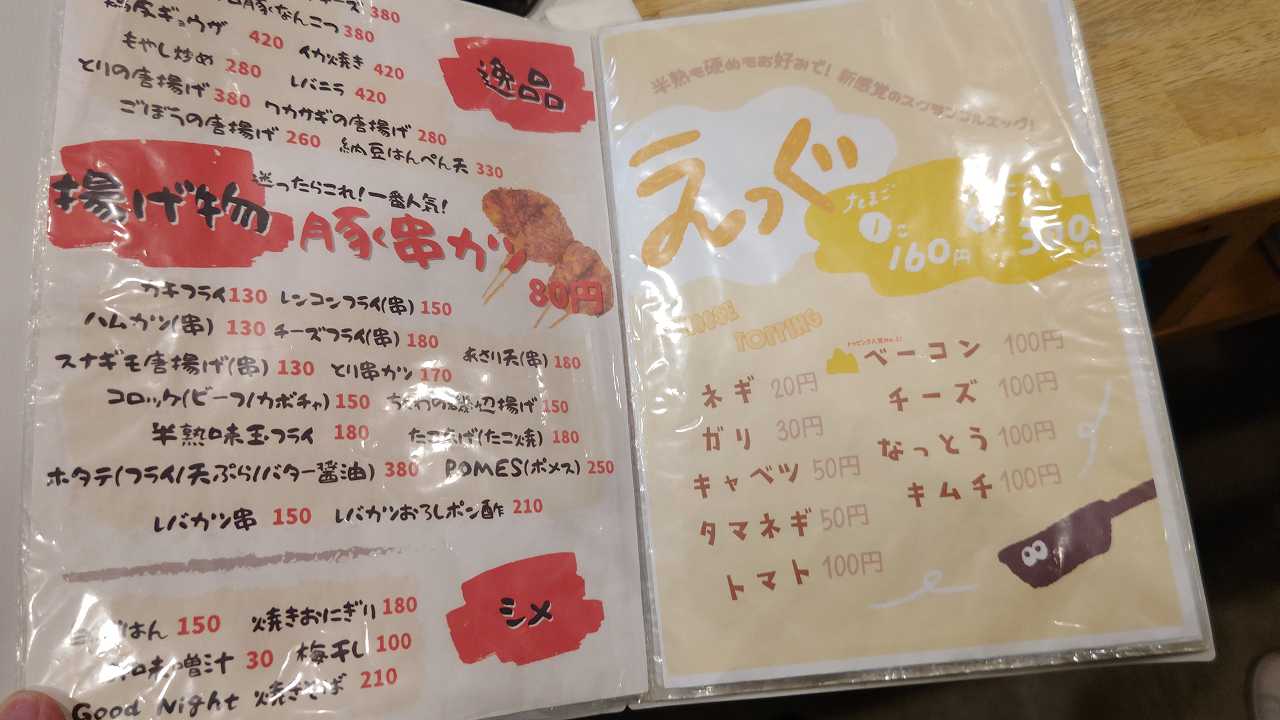 380
豚なんこつ 380
ギョウザ 420
イカ焼き 420
もやし炒め 280
レバニラ 420
とりの唐揚げ 380
ワカサギの唐揚げ 280
ごぼうの唐揚げ 260
納豆はんぺん天 330
逸品
揚げ物
迷ったらこれ!一番人気!
豚串カツ
80円
130
レンコンフライ(串) 150
ハムカツ(串) 130
チーズフライ(串) 180
スナギモ唐揚げ(串) 130
とり串カツ 170
あさり天(串) 180
コロッケ(ビーフ/カボチャ) 150
ちくわの磯辺揚げ 150
半熟味玉フライ 180
たこあげ(たこ焼) 180
ホタテ(フライ/天ぷら/バター醤油) 380
POMES(ポメス) 250
レバカツ串 150
レバカツおろしポン酢 210
シメ
150
焼きおにぎり 180
味噌汁 30
梅干し 100
Good Night 焼きそば 210
半熟も硬めもお好みで!新感覚のスクランブルエッグ!
えっぐ
たまご
1こ
160円
TOPPING
ベーコン 100円
ネギ 20円
チーズ 100円
ガリ 30円
なっとう 100円
キャベツ 50円
キムチ 100円
タマネギ 50円
トマト 100円